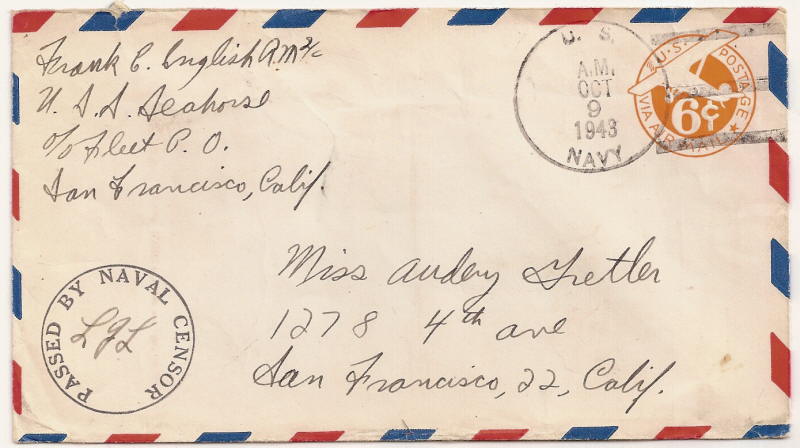 Frank E. English R.M 2/c
U. S. S. Seahorse
c/o Fleet P. O.
San Francisco, Calif.
U. S.
A.M.
OCT
9
1943
NAVY
U.S. POSTAGE
6¢
VIA AIR MAIL
Miss Audery Tretler
1278 4th ave
San Francisco, 22, Calif.
PASSED BY NAVAL CENSOR
LGL